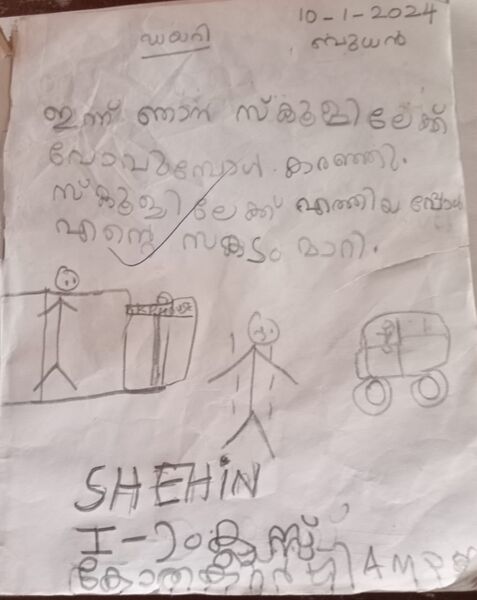 10-1-2024
ഡയറി
ബുധൻ
ഇന്ന് ഞാൻ സ്കൂളിലേക്ക്
പോവുമ്പോൾ കരഞ്ഞു.
സ്കൂളിലേക്ക് എത്തിയപ്പോൾ
എന്റെ സങ്കടം മാറി.
SHEHiN
I-ാംക്ലാസ്സ്